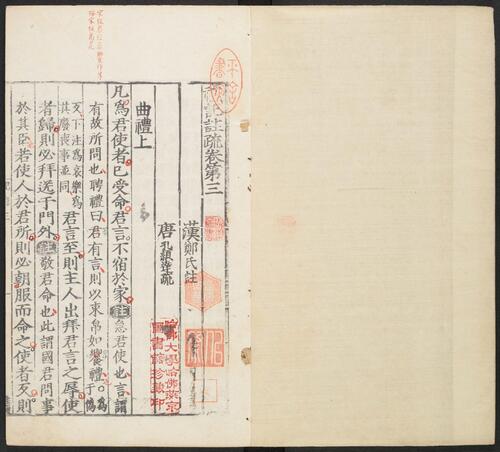 禮記註疏卷第三
漢鄭氏註
唐孔穎達疏
曲禮上
凡爲君使者已受命君言不宿於家註急君使也言謂
有故所問也聘禮曰君有言則以束帛如饗禮○爲于僞
反下注爲哀樂爲
其廢喪事並同
君言至則主人出拜君言之辱使
者歸則必拜送于門外註敬君命也此謂國君問事
於其臣若使人於君所則必朝服而命之使者反則
哈佛大學哈佛燕京
圖書館珍藏印